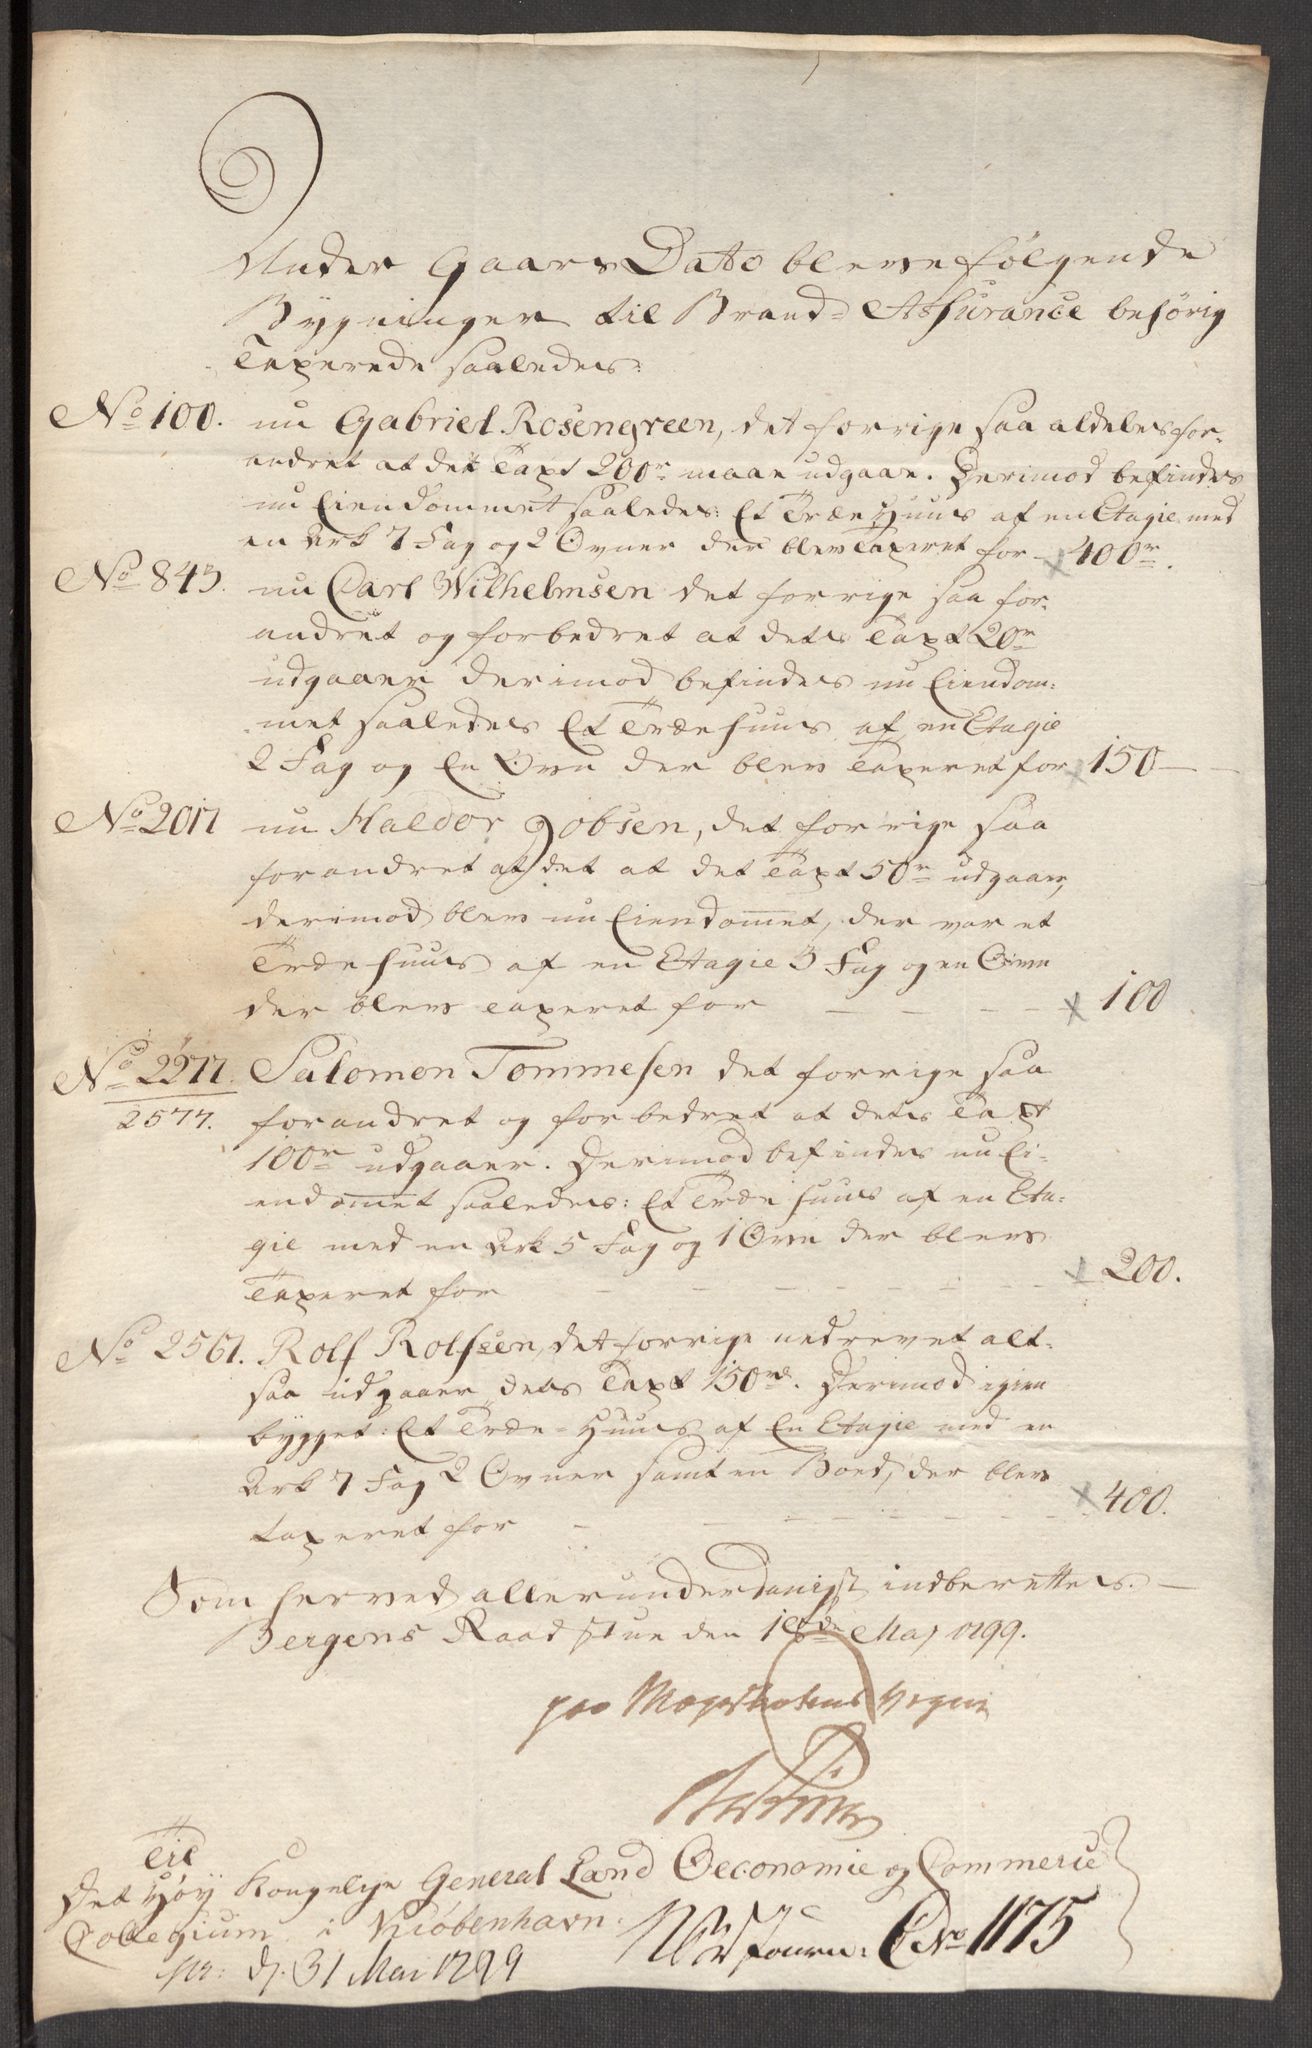 Under Gaars Dato bleve følgende
Bygninger til Brand- Assurance behörig
Taxerede saaledes:
No 100. nu Gabriel Rosengreen, det forrige saa aldeles for-
andret at det Taxt 200r maae udgaae. Derimod befindes
nu Eiendommet saaledes: Et Træe Huus af en Etagie med
en Ark 7 Fag og 2 Ovner der blev Taxeret for - 400r.
No 845. nu Carl Wilhelmsen det forrige saa for-
andret og forbedret at dets Taxt 20r
udgaaer derimod befindes nu Eiendom-
met saaledes Et Træehuus af en Etagie
2 Fag og En Ovn der blev Taxeret for 150 -
No 2017 nu Haldor Jobsen, det forrige saa
forandret at det at det Taxt 50r udgaaer,
derimod blev nu Eiendomet, der var et
Træehuus af en Etagie 3 Fag og en Ovn
der blev taxeret for - - - - 100
No 2277. Salomon Tommesen det forrige saa
2577. forandret og forbedret at dets Taxt
100r udgaaer. Derimod befindes nu Ei-
endomet saaledes: Et Træe huus af en Eta-
gie med en Ark 5 Fag og 1 Ovn der blev
Taxeret for - - - - - - 200.
No 2561. Rolf Rolfsen, det forrige nedrevet alt-
saa udgaaer dets Taxt 150rd. Derimod igien
bygget: Et Træe-Huus af En Etagie med en
Ark 7 Fag 2 Ovner samt en Boed, der blev
taxeret for - - - - - - - 400.
Som herved allerunderdanigst indberettes. -
Bergens Raadstue den 18de Maj 1799.
paa Magistratens Vegne
Til
Det Høy Kongelige General Land Oeconomie og Commerce
Collegium i Kiöbenhavn.
Journ: C No 1175
pr: d. 31 Mai 1799